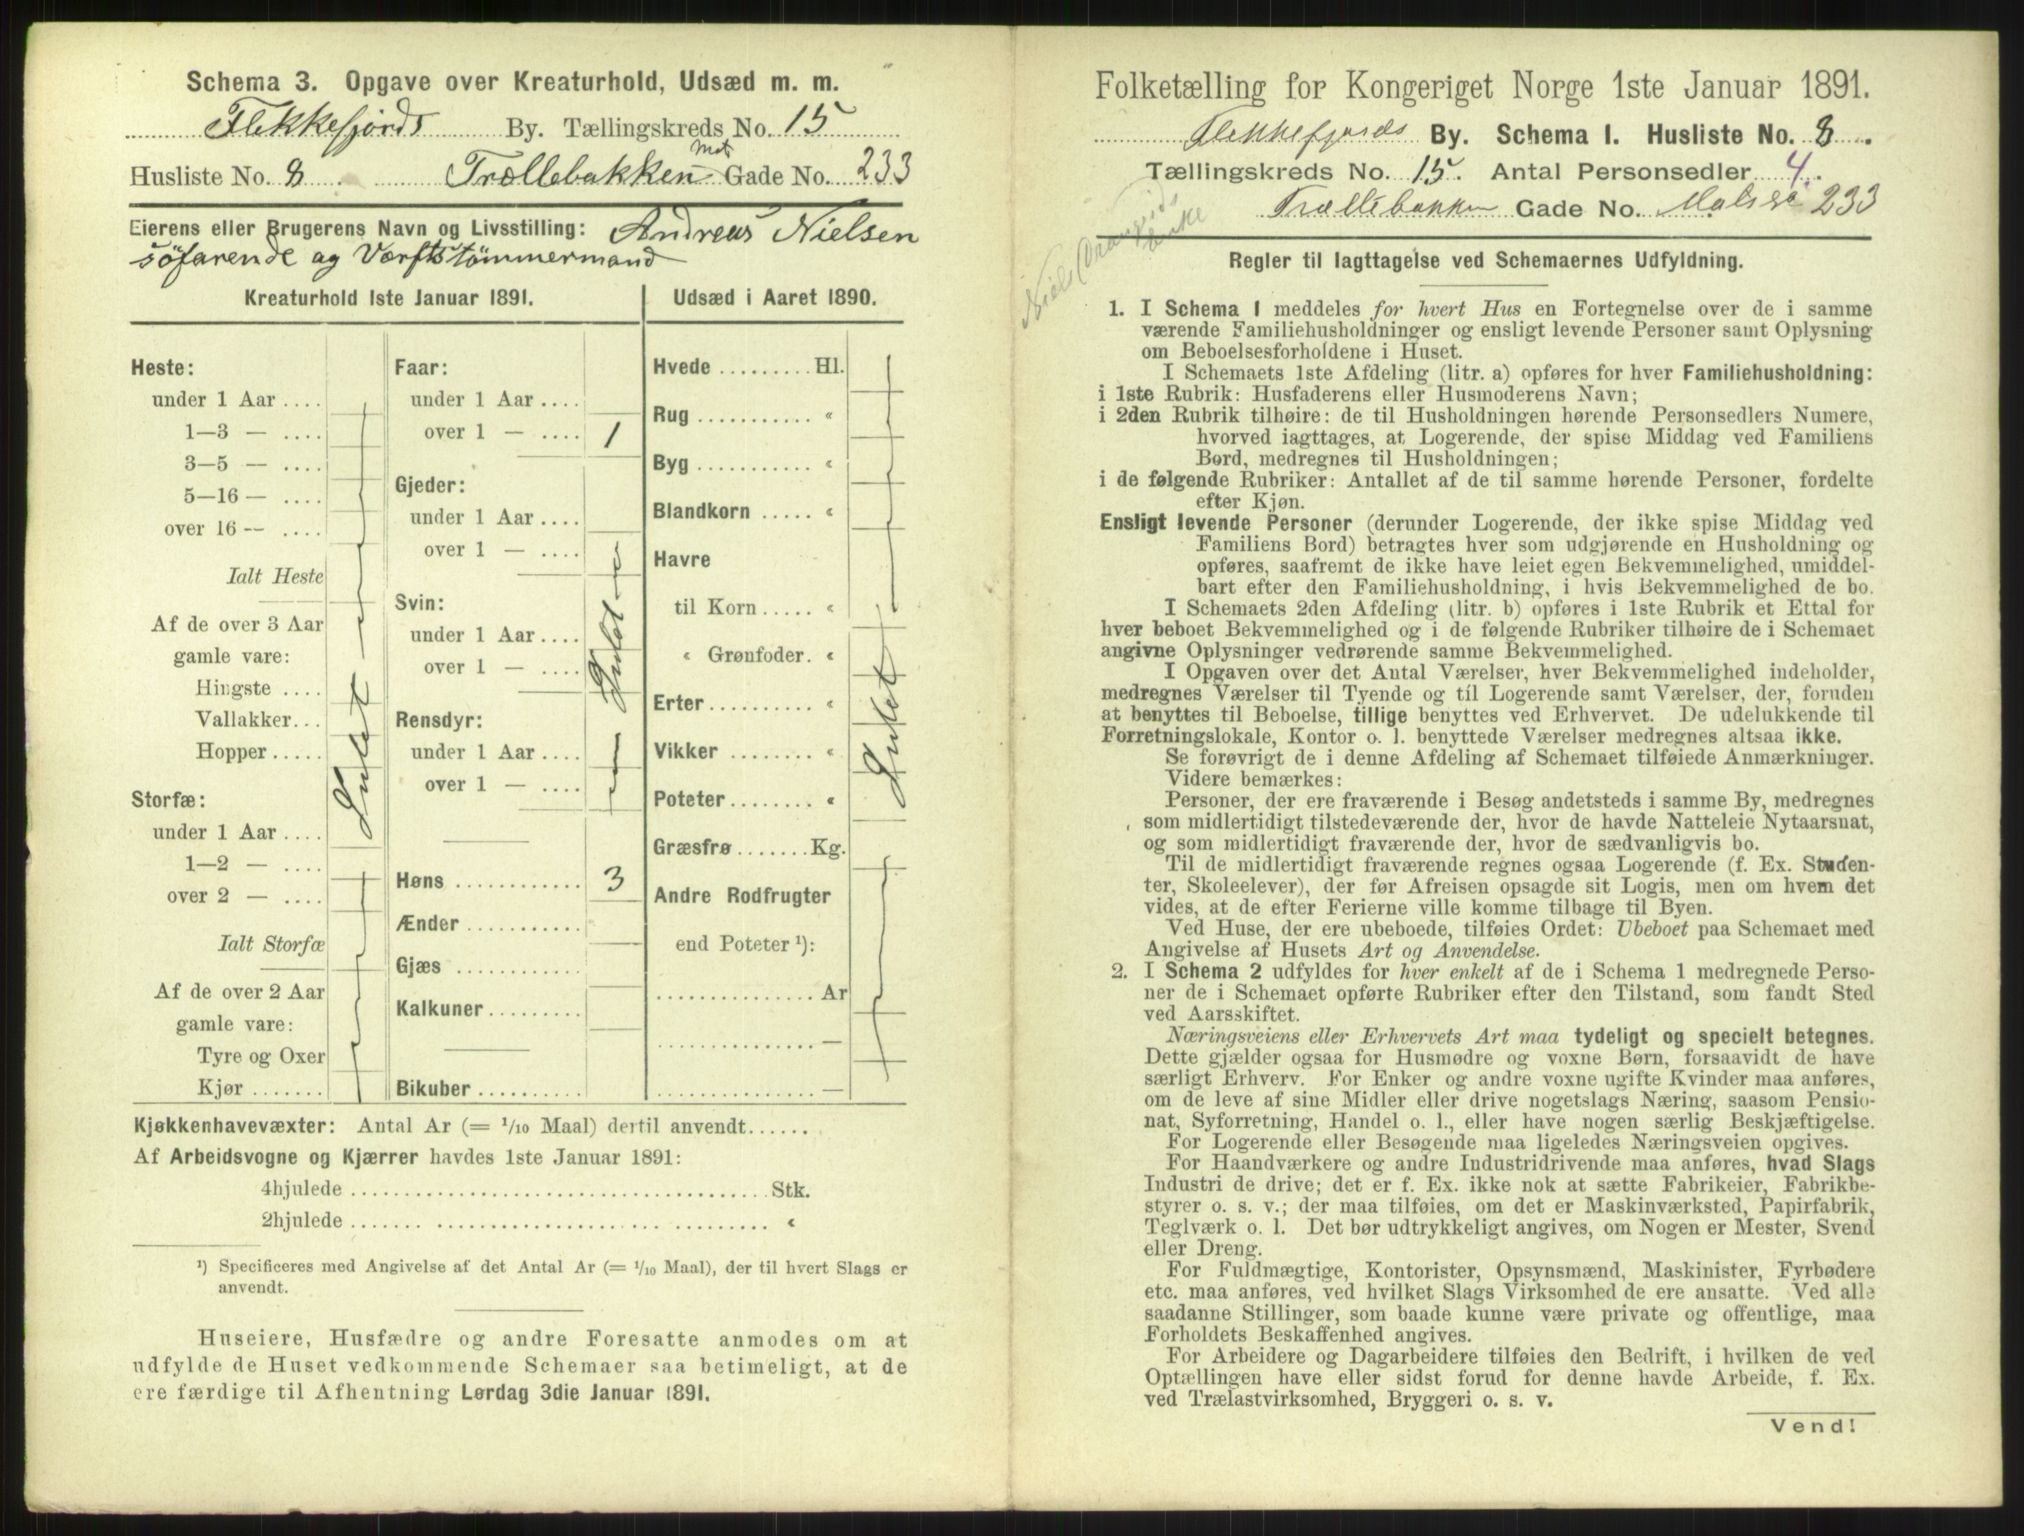 Schema 3. Opgave over Kreaturhold, Udsæd m. m.
Flekkefjords By. Tællingskreds No. 15
Husliste No. 8 Trællebakken Mat Gade No. 233
Eierens eller Brugerens Navn og Livsstilling: Andreas Nielsen
söfarende og Værftstömmermand
Kreaturhold 1ste Januar 1891.
Heste:
under 1 Aar ....
1—3 — ....
3—5 — ....
5—16 — ....
over 16 — ....
Ialt Heste
Af de over 3 Aar
gamle vare:
Hingste ....
Vallakker...
Hopper .....
Intet
Storfæ:
under 1 Aar ....
1—2 — ....
over 2 — ....
Ialt Storfæ
Af de over 2 Aar
gamle vare:
Tyre og Oxer
Kjør .......
Faar:
under 1 Aar ....
over 1 — .... 1
Gjeder:
under 1 Aar ....
over 1 — ....
Svin:
under 1 Aar ....
over 1 — ....
Intet
Rensdyr:
under 1 Aar ....
over 1 — ....
Høns ............ 3
Ænder ...........
Gjæs ............
Kalkuner .........
Bikuber ..........
Udsæd i Aaret 1890.
Hvede ......... Hl.
Rug ........... «
Byg ........... «
Blandkorn ..... «
Havre
til Korn ..... «
« Grønfoder. «
Erter .......... «
Vikker ........ «
Poteter ........ «
Intet
Græsfrø ....... Kg.
Andre Rodfrugter
end Poteter ¹):
............... Ar
............... —
............... —
Kjøkkenhavevæxter: Antal Ar (= 1/10 Maal) dertil anvendt......
Af Arbeidsvogne og Kjærrer havdes 1ste Januar 1891:
4hjulede ........................................ Stk.
2hjulede ........................................ «
¹) Specificeres med Angivelse af det Antal Ar (= 1/10 Maal), der til hvert Slags er
anvendt.
Huseiere, Husfædre og andre Foresatte anmodes om at
udfylde de Huset vedkommende Schemaer saa betimeligt, at de
ere færdige til Afhentning Lørdag 3die Januar 1891.
Folketælling for Kongeriget Norge 1ste Januar 1891.
Flekkefjords By. Schema 1. Husliste No. 8
Tællingskreds No. 15. Antal Personsedler 4.
Trællebakken Gade No. 233
Niels
Regler til Iagttagelse ved Schemaernes Udfyldning.
1. I Schema 1 meddeles for hvert Hus en Fortegnelse over de i samme
værende Familiehusholdninger og ensligt levende Personer samt Oplysning
om Beboelsesforholdene i Huset.
I Schemaets 1ste Afdeling (litr. a) opføres for hver Familiehusholdning:
i 1ste Rubrik: Husfaderens eller Husmoderens Navn;
i 2den Rubrik tilhøire: de til Husholdningen hørende Personsedlers Numere,
hvorved iagttages, at Logerende, der spise Middag ved Familiens
Bord, medregnes til Husholdningen;
i de følgende Rubriker: Antallet af de til samme hørende Personer, fordelte
efter Kjøn.
Ensligt levende Personer (derunder Logerende, der ikke spise Middag ved
Familiens Bord) betragtes hver som udgjørende en Husholdning og
opføres, saafremt de ikke have leiet egen Bekvemmelighed, umiddel-
bart efter den Familiehusholdning, i hvis Bekvemmelighed de bo.
I Schemaets 2den Afdeling (litr. b) opføres i 1ste Rubrik et Ettal for
hver beboet Bekvemmelighed og i de følgende Rubriker tilhøire de i Schemaet
angivne Oplysninger vedrørende samme Bekvemmelighed.
I Opgaven over det Antal Værelser, hver Bekvemmelighed indeholder,
medregnes Værelser til Tyende og til Logerende samt Værelser, der, foruden
at benyttes til Beboelse, tillige benyttes ved Erhvervet. De udelukkende til
Forretningslokale, Kontor o. l. benyttede Værelser medregnes altsaa ikke.
Se forøvrigt de i denne Afdeling af Schemaet tilføiede Anmærkninger.
Videre bemærkes:
Personer, der ere fraværende i Besøg andetsteds i samme By, medregnes
som midlertidigt tilstedeværende der, hvor de havde Natteleie Nytaarsnat,
og som midlertidigt fraværende der, hvor de sædvanligvis bo.
Til de midlertidigt fraværende regnes ogsaa Logerende (f. Ex. Studen-
ter, Skoleelever), der før Afreisen opsagde sit Logis, men om hvem det
vides, at de efter Ferierne ville komme tilbage til Byen.
Ved Huse, der ere ubeboede, tilføies Ordet: Ubeboet paa Schemaet med
Angivelse af Husets Art og Anvendelse.
2. I Schema 2 udfyldes for hver enkelt af de i Schema 1 medregnede Perso-
ner de i Schemaet opførte Rubriker efter den Tilstand, som fandt Sted
ved Aarsskiftet.
Næringsveiens eller Erhvervets Art maa tydeligt og specielt betegnes.
Dette gjælder ogsaa for Husmødre og voxne Børn, forsaavidt de have
særligt Erhverv. For Enker og andre voxne ugifte Kvinder maa anføres,
om de leve af sine Midler eller drive nogetslags Næring, saasom Pensio-
nat, Syforretning, Handel o. l., eller have nogen særlig Beskjæftigelse.
For Logerende eller Besøgende maa ligeledes Næringsveien opgives.
For Haandværkere og andre Industridrivende maa anføres, hvad Slags
Industri de drive; det er f. Ex. ikke nok at sætte Fabrikeier, Fabrikbe-
styrer o. s. v.; der maa tilføies, om det er Maskinværksted, Papirfabrik,
Teglværk o. l. Det bør udtrykkeligt angives, om Nogen er Mester, Svend
eller Dreng.
For Fuldmægtige, Kontorister, Opsynsmænd, Maskinister, Fyrbødere
etc. maa anføres, ved hvilket Slags Virksomhed de ere ansatte. Ved alle
saadanne Stillinger, som baade kunne være private og offentlige, maa
Forholdets Beskaffenhed angives.
For Arbeidere og Dagarbeidere tilføies den Bedrift, i hvilken de ved
Optællingen have eller sidst forud for denne havde Arbeide, f. Ex.
ved Trælastvirksomhed, Bryggeri o. s. v.
Vend!